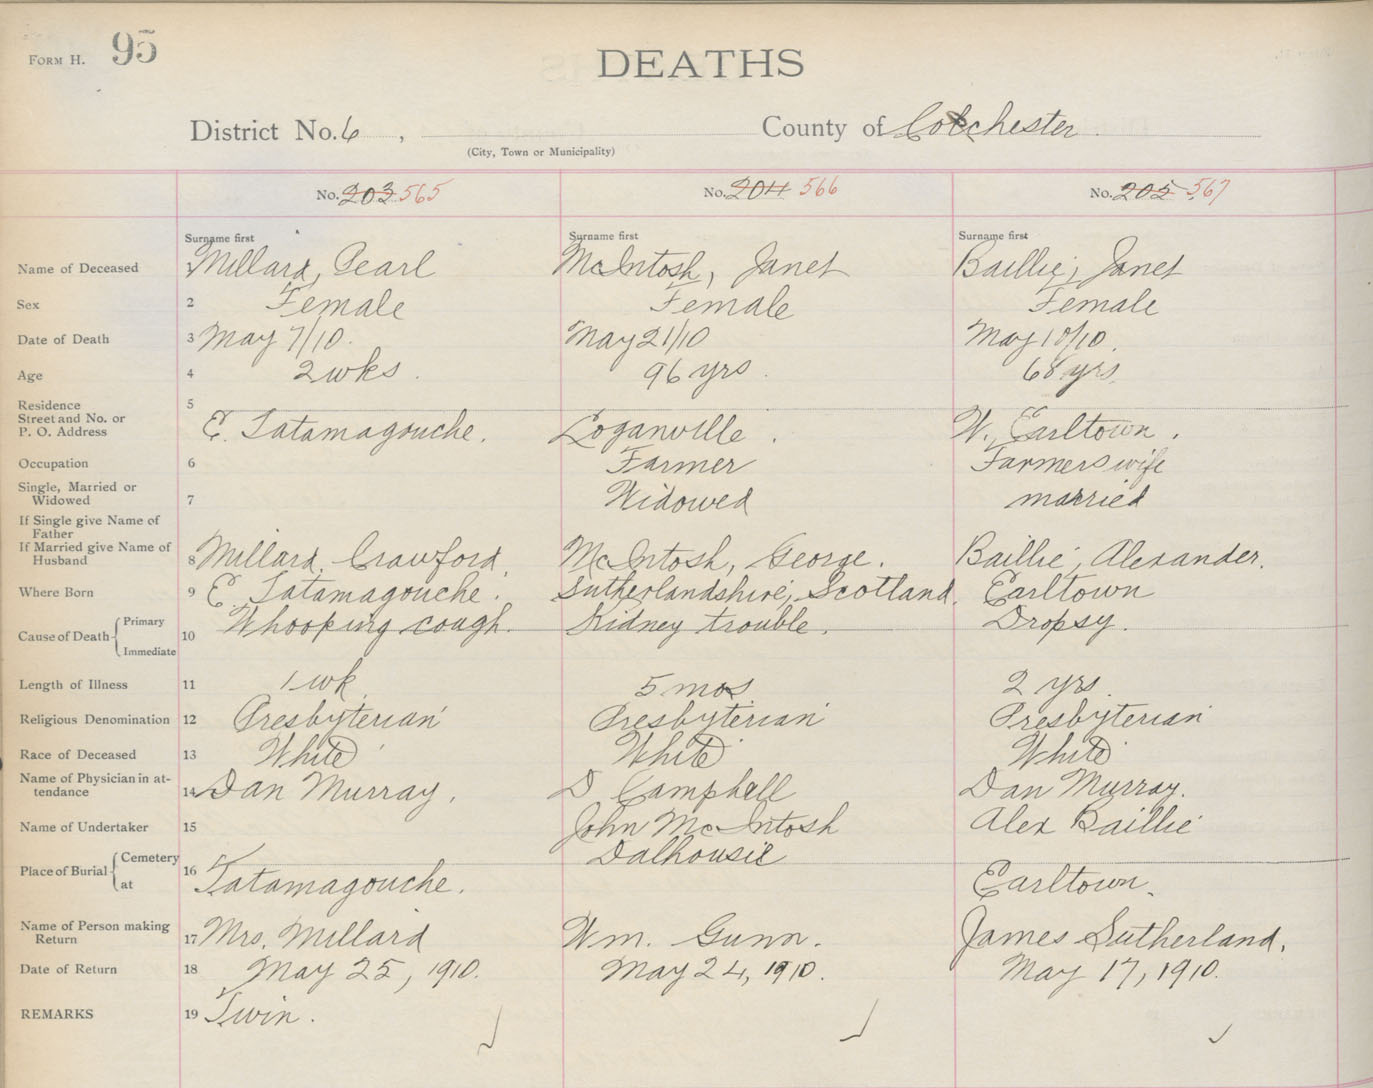 FORM H. 95
DEATHS
District No. 6 , County of Colchester
(City, Town or Municipality)
No. 203 565 No. 204 566 No. 205 567
Surname first Surname first Surname first
Name of Deceased 1 Millard, Pearl McIntosh, Janet Baillie, Janet
Sex 2 Female Female Female
Date of Death 3 May 7/10. May 21/10 May 10/10.
Age 4 2 wks. 96 yrs. 68 yrs.
Residence 5
Street and No. or
P. O. Address E. Tatamagouche. Loganville. W. Earltown.
Occupation 6 Farmer Farmers wife
Single, Married or
Widowed 7 Widowed married
If Single give Name of
Father
If Married give Name of
Husband 8 Millard, Crawford. McIntosh, George. Baillie, Alexander.
Where Born 9 E Tatamagouche. Sutherlandshire, Scotland. Earltown
Cause of Death Primary Whooping cough. Kidney trouble. Dropsy.
10
Immediate
Length of Illness 11 1 wk 5 mos 2 yrs.
Religious Denomination 12 Presbyterian Presbyterian Presbyterian
Race of Deceased 13 White White White
Name of Physician in at-
tendance 14 Dan Murray. D Campbell Dan Murray.
Name of Undertaker 15 John McIntosh Alex Baillie
Place of Burial Cemetery Dalhousie
at 16 Tatamagouche. Earltown.
Name of Person making
Return 17 Mrs. Millard Wm. Gunn. James Sutherland.
Date of Return 18 May 25, 1910. May 24, 1910. May 17, 1910.
REMARKS 19 Twin.